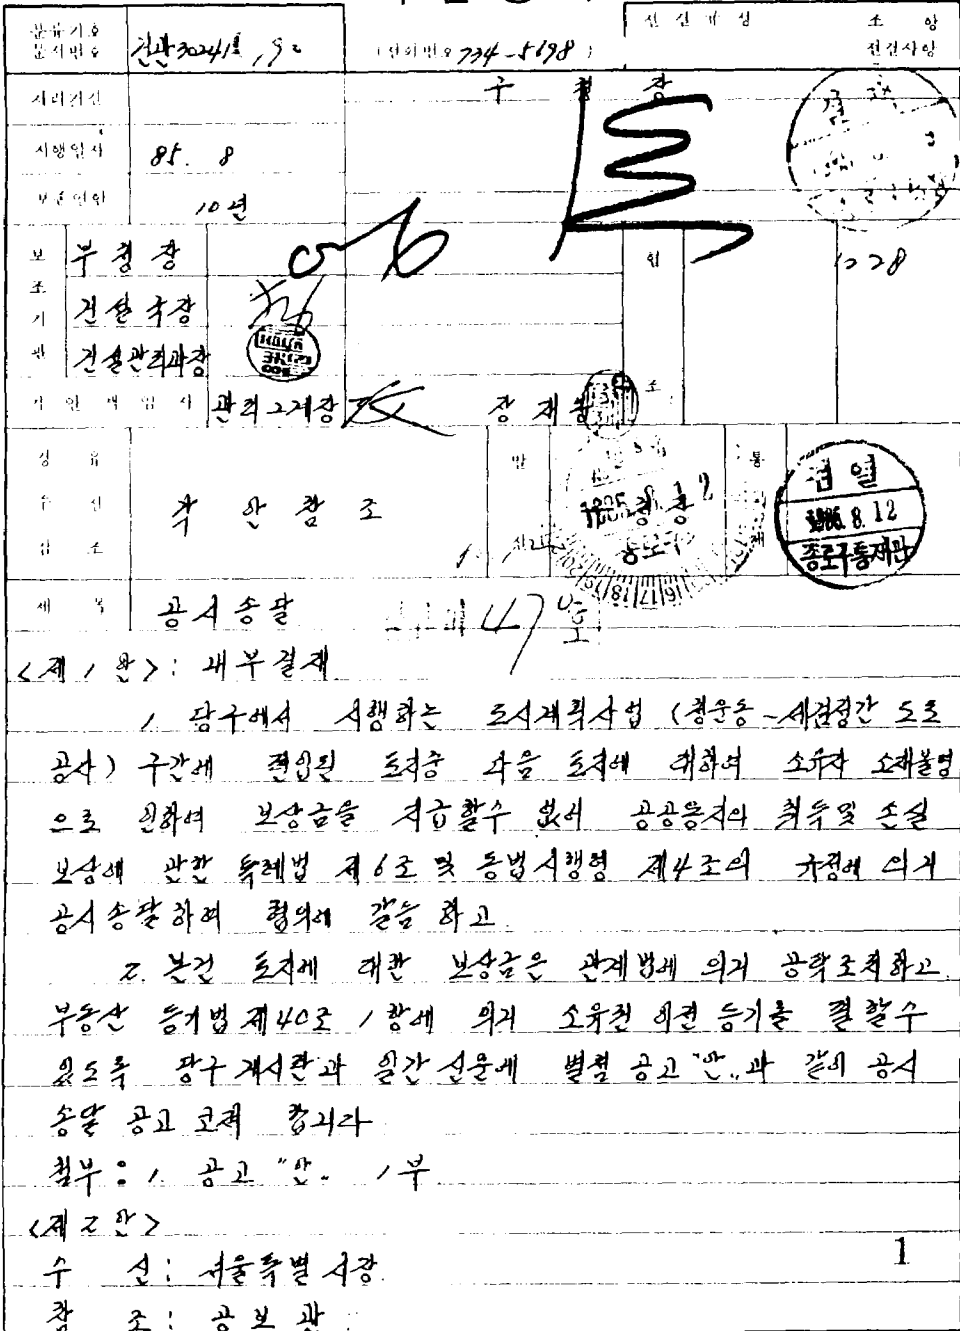 분류기호
문서번호 건관30241 (전화번호 734-5698) 전결규정 조 항
전결사항
처리기간 구 청 장
시행일자 85. 8
보존연한 10년
보조기관 부청장
건설국장
건설관리과장
기안책임자 관리2계장
경유
수신 각 안 참조
참조
검열
1985.8.12
종로구통제관
제 목 공시송달
47호
<제1안>: 내부결재
1. 당구에서 시행하는 도시계획사업 (청운동-세검정간 도로
공사) 구간에 편입된 토지중 다음 토지에 대하여 소유자 소재불명
으로 인하여 보상금을 지급할수 없어 공공용지의 취득및 손실
보상에 관한 특례법 제6조 및 동법시행령 제4조의 규정에 의거
공시송달하여 협의에 갈음 하고
2. 본건 토지에 대한 보상금은 관계법에 의거 공탁조치하고
부동산 등기법 제40조 1항에 의거 소유권 이전 등기를 필할수
있도록 당구 게시판과 일간신문에 별첨 공고"안"과 같이 공시
송달 공고 코저 합니다
첨부: 1. 공고"안" 1부
<제2안>
수 신: 서울특별시장
참 조: 공보관
1